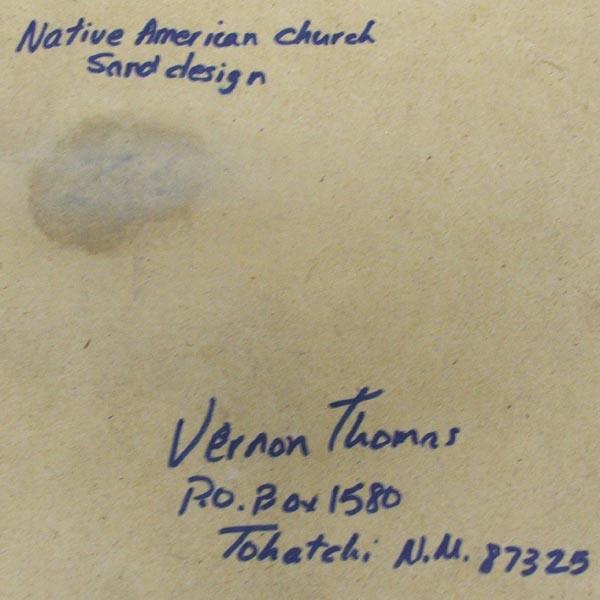 Native American church
Sand design
Vernon Thomas
P.O. Box 1580
Tohatchi N.M. 87325